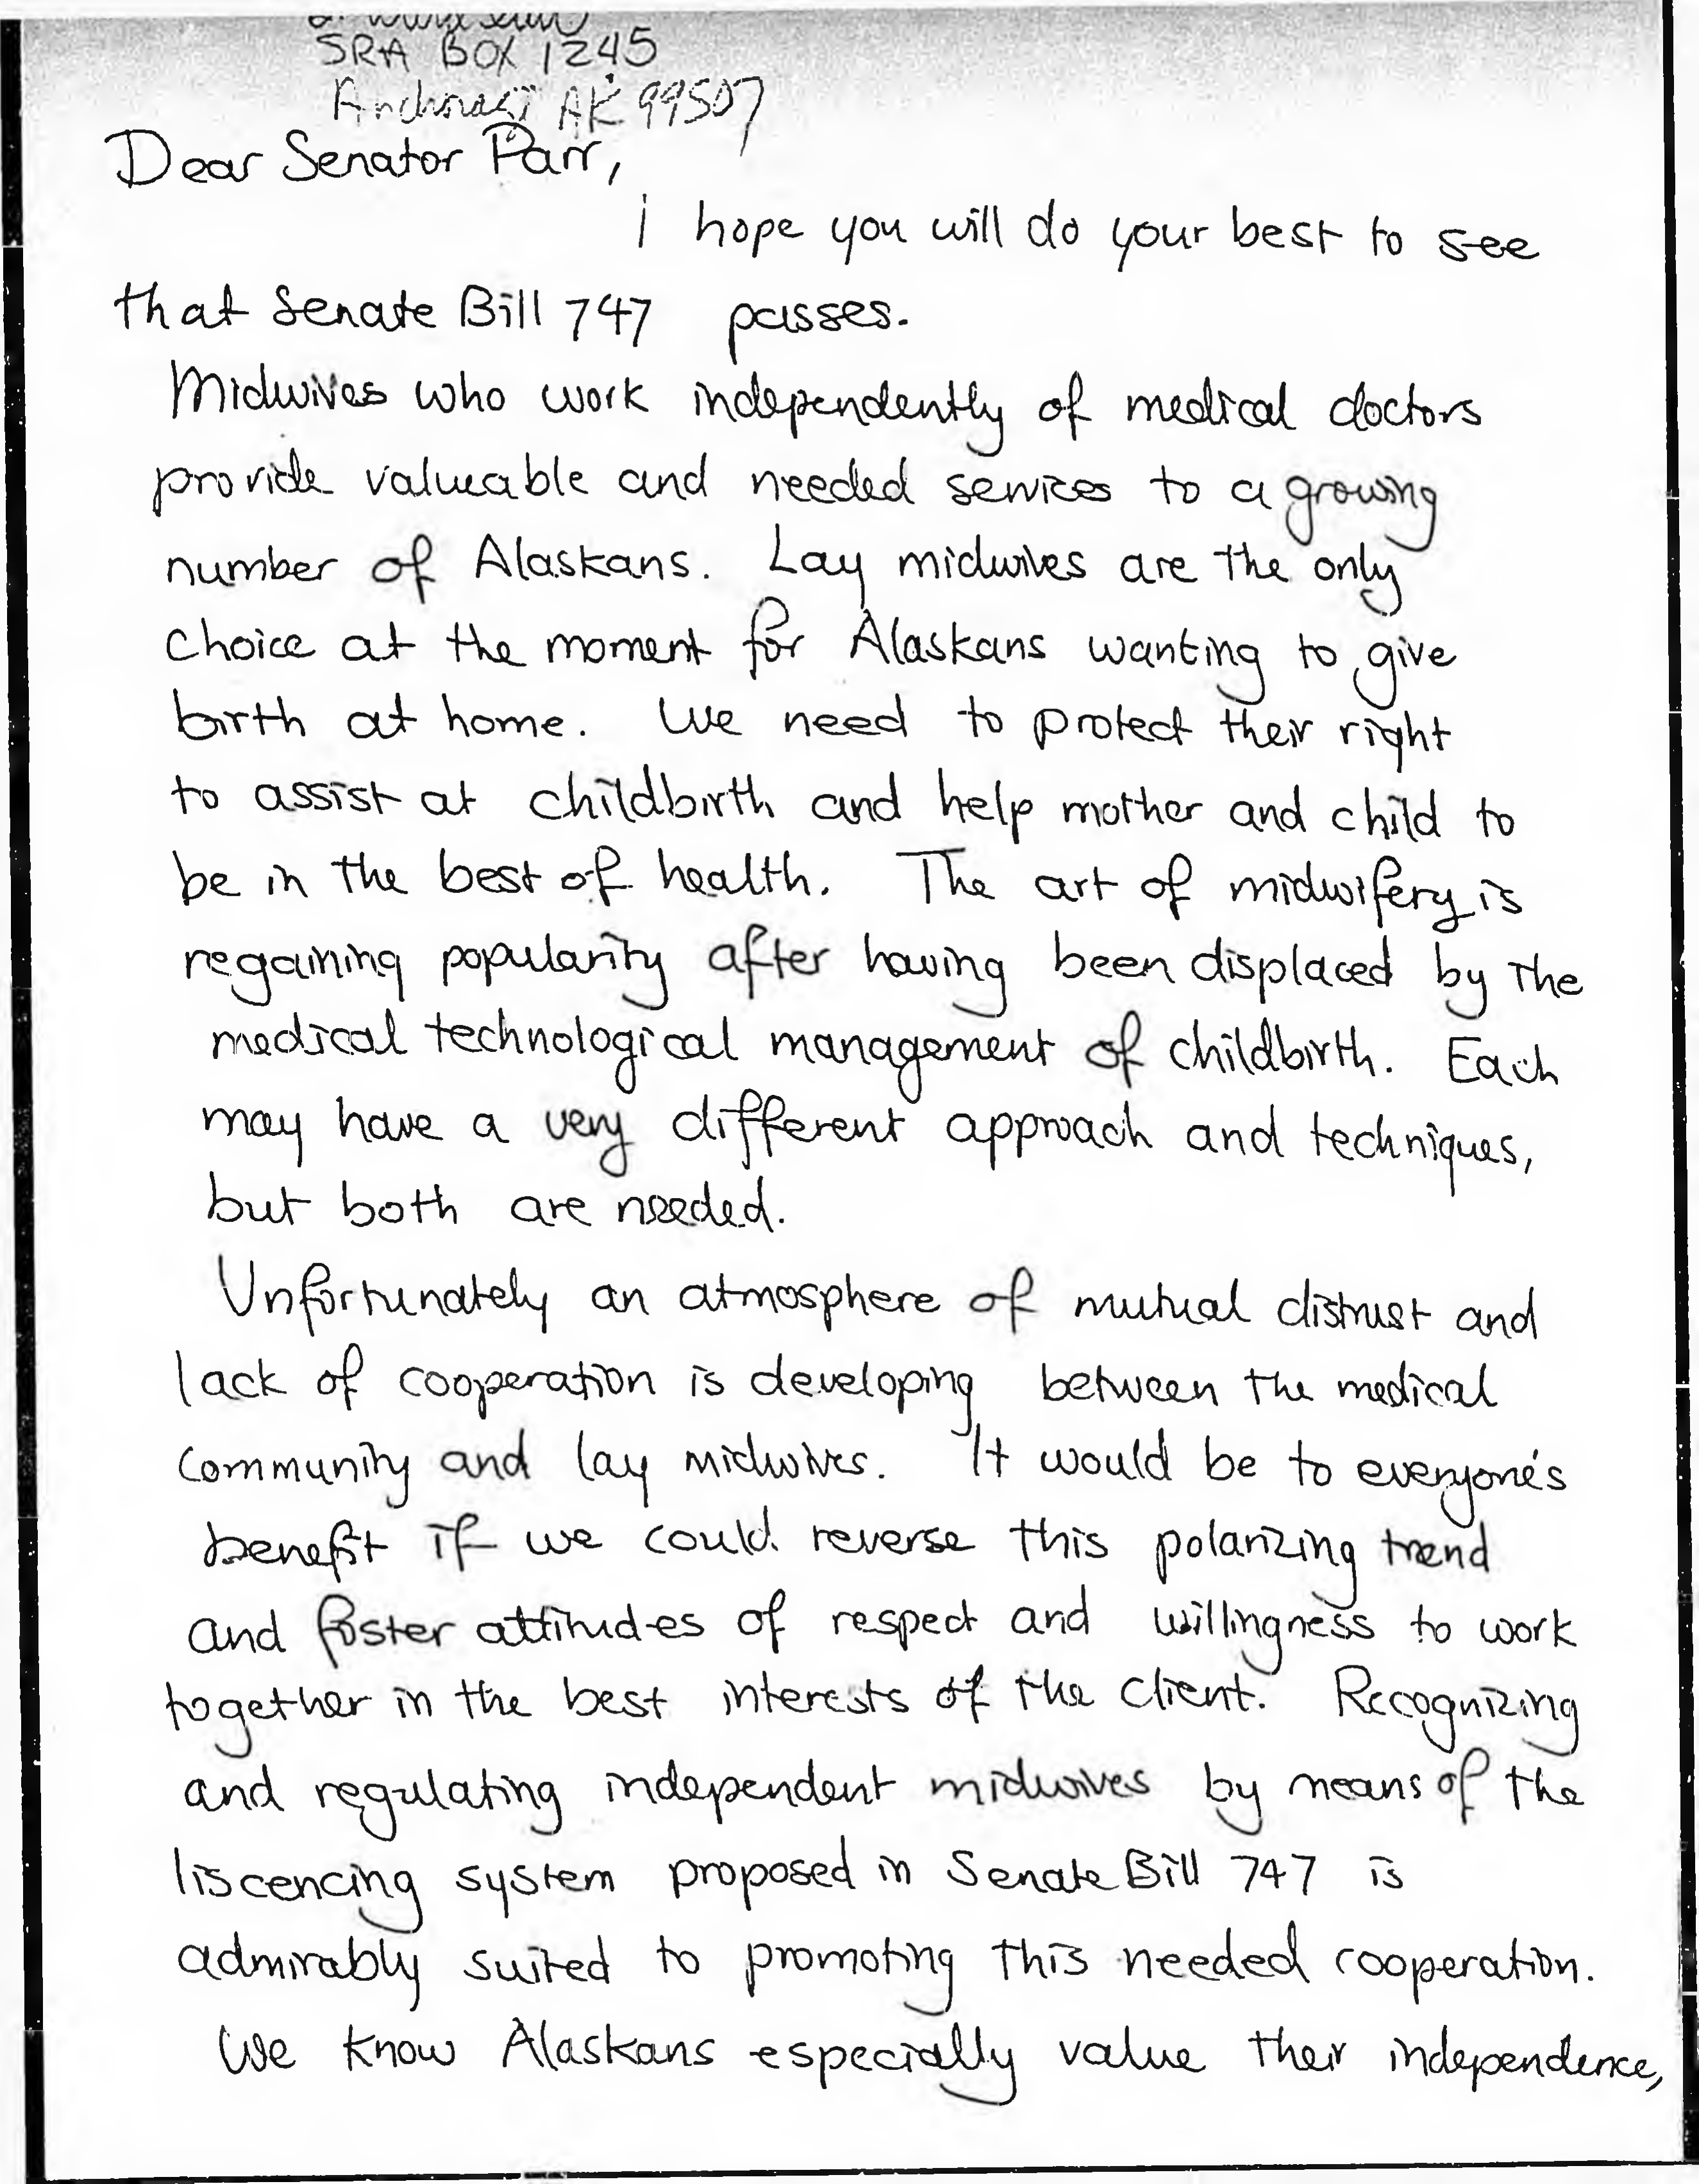 SRA BOX 1245
Anchorage AK 99507
Dear Senator Parr,
I hope you will do your best to see
that Senate Bill 747 passes.
Midwives who work independently of medical doctors
provide valueable and needed services to a growing
number of Alaskans. Lay midwives are the only
choice at the moment for Alaskans wanting to give
birth at home. We need to protect their right
to assist at childbirth and help mother and child to
be in the best of health. The art of midwifery is
regaining popularity after having been displaced by the
medical technological management of childbirth. Each
may have a very different approach and techniques,
but both are needed.
Unfortunately an atmosphere of mutual distrust and
lack of cooperation is developing between the medical
community and lay midwives. It would be to everyone's
benefit if we could reverse this polarizing trend
and foster attitudes of respect and willingness to work
together in the best interests of the client. Recognizing
and regulating independent midwives by means of the
liscencing system proposed in Senate Bill 747 is
admirably suited to promoting this needed cooperation.
We know Alaskans especially value their independence,